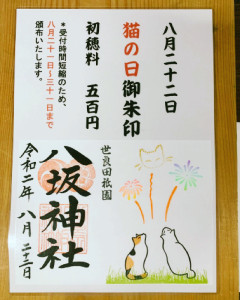 八月二十二日
猫の日御朱印
初穂料　五百円
＊受付時間短縮のため、
八月二十一日～三十一日まで
頒布いたします。
世良田祇園
八坂神社
令和二年八月二十二日